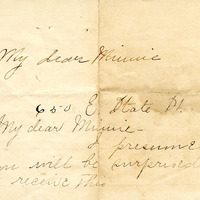 My dear Minnie
650 E. State St.
My dear Minnie—
I presume
you will be surprised
receive this